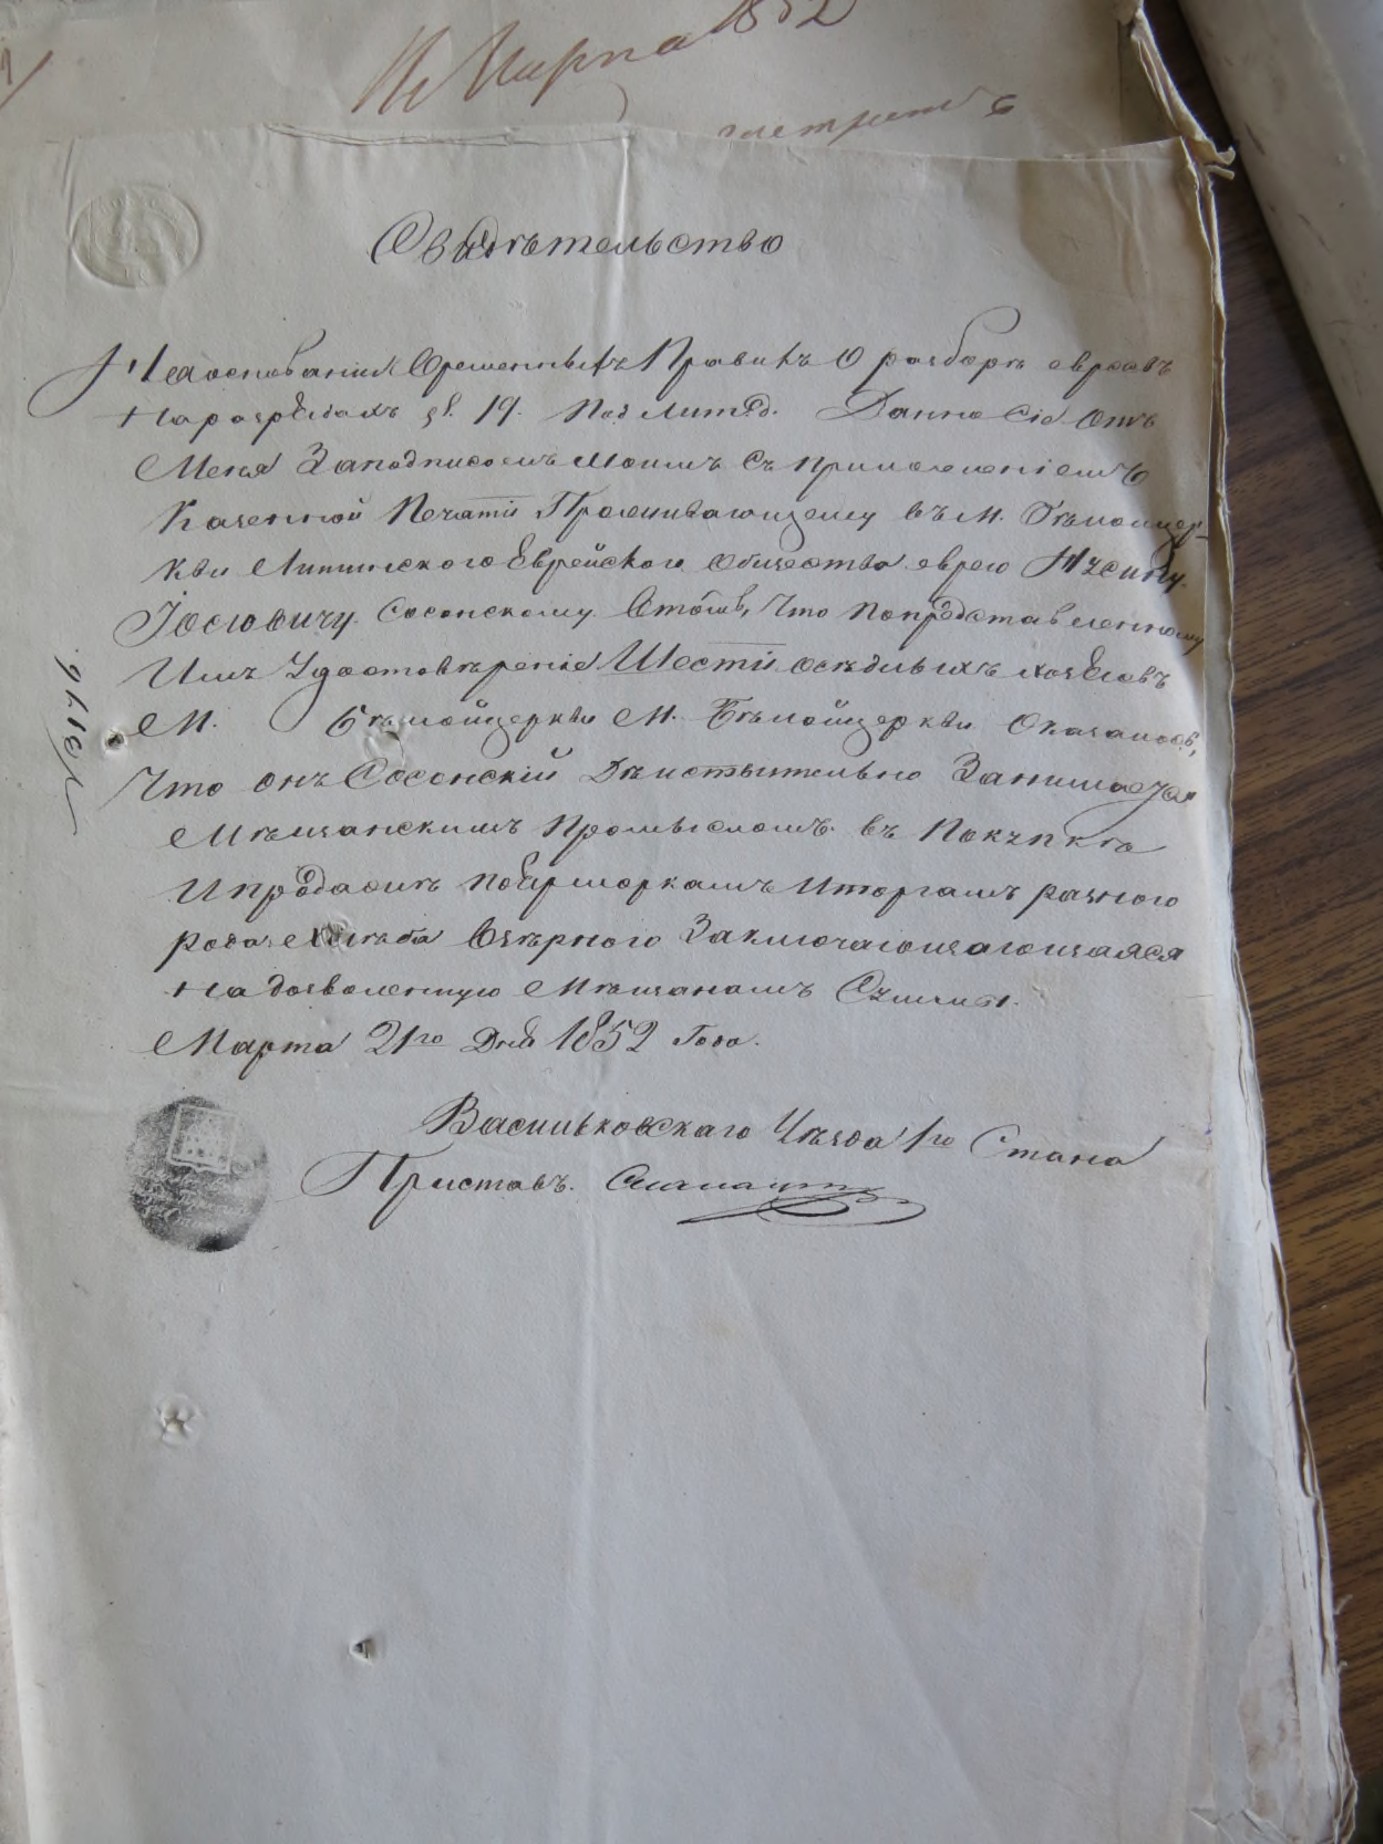 Марта 1852
Свидѣтельство
На основаніи Временныхъ Правилъ О разборѣ евреевъ
На разряды §. 19. Под Литд. Данно Сіе Отъ
Меня За подписомъ Моимъ Съ приложеніемъ
Казенной Печати Проживающему въ М. Бѣлоцер-
кви Липинского Еврейского Общества еврею
Іосіовичу Сосонскому Втомъ, Что По представленному
Имъ Удостовѣреніе Шести осѣдлыхъ хозяевъ
М. Бѣлойцеркви М. Бѣлойцеркви Оказалось,
Что онъ Сосонскій Дѣйствительно Занимается
Мѣщанскимъ Промысломъ въ Покупкѣ
И продажѣ по Ярморкамъ И торгамъ разного
рода Хлѣба Озѣрного Заключающагощаяся
На дозволенную Мѣщанамъ Сумму.
Марта 21го Дня 1852 Года.
Васильковскаго Уѣзда 1го Стана
Приставъ.
№1976.